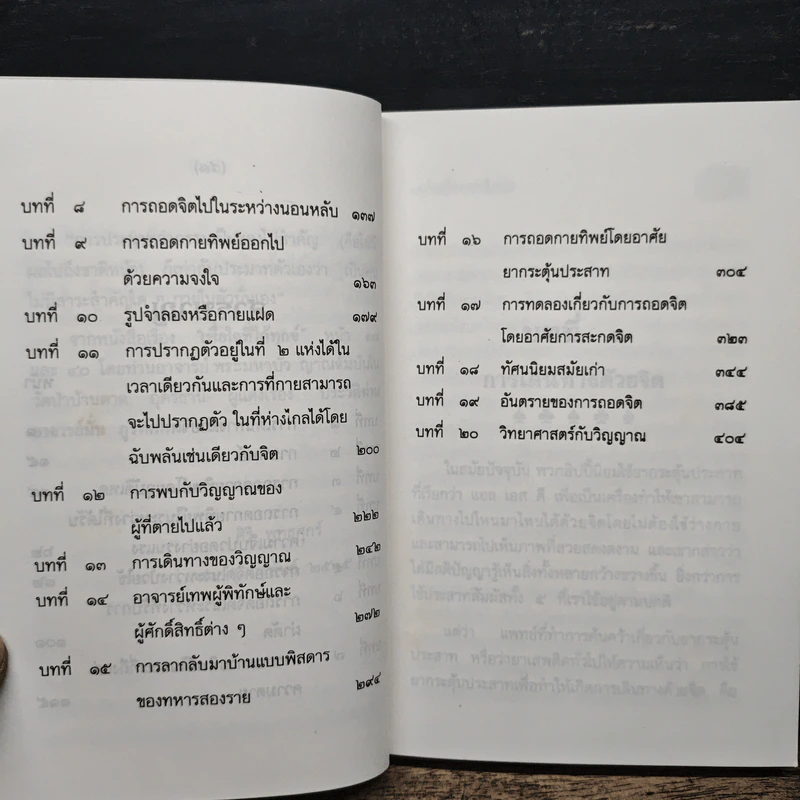 บทที่ ๘ การถอดจิตไปในระหว่างนอนหลับ ๑๓๗
บทที่ ๙ การถอดกายทิพย์ออกไป
ด้วยความจงใจ ๑๖๓
บทที่ ๑๐ รูปจำลองหรือกายแฝด ๑๗๙
บทที่ ๑๑ การปรากฏตัวอยู่ในที่ ๒ แห่งได้ใน
เวลาเดียวกันและการที่กายสามารถ
จะไปปรากฏตัว ในที่ห่างไกลได้โดย
ฉับพลันเช่นเดียวกับจิต ๒๐๐
บทที่ ๑๒ การพบกับวิญญาณของ
ผู้ที่ตายไปแล้ว ๒๒๒
บทที่ ๑๓ การเดินทางของวิญญาณ ๒๔๒
บทที่ ๑๔ อาจารย์เทพผู้พิทักษ์และ
ผู้ศักดิ์สิทธิ์ต่าง ๆ ๒๗๒
บทที่ ๑๕ การลากลับมาบ้านแบบพิสดาร
ของทหารสองราย ๒๙๔
บทที่ ๑๖ การถอดกายทิพย์โดยอาศัย
ยากระตุ้นประสาท ๓๐๔
บทที่ ๑๗ การทดลองเกี่ยวกับการถอดจิต
โดยอาศัยการสะกดจิต ๓๒๓
บทที่ ๑๘ ทัศนนิยมสมัยเก่า ๓๔๔
บทที่ ๑๙ อันตรายของการถอดจิต ๓๘๕
บทที่ ๒๐ วิทยาศาสตร์กับวิญญาณ ๔๐๔